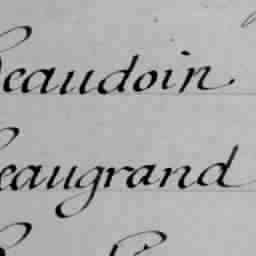 Beaudoin
Beaugrand